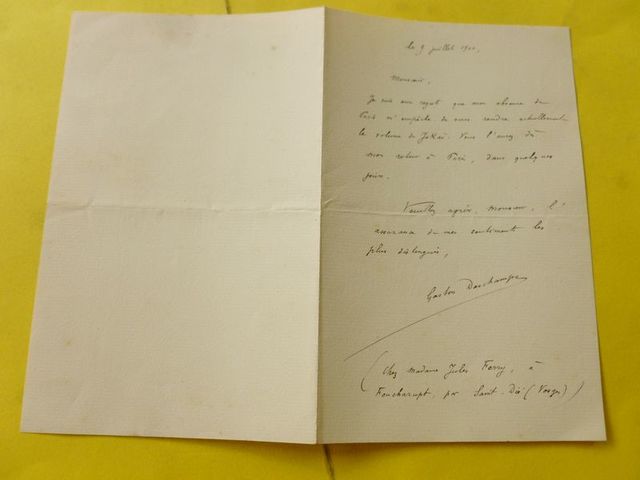 le 9 juillet 1900.
Monsieur,
Je vois avec regret que mon absence de
Paris m'empêche de vous rendre actuellement
le volume de Jokai. Vous l'aurez dès
mon retour à Paris, dans quelques
jours.
Veuillez agréer, Monsieur, l'
assurance de mes sentiments les
plus distingués,
Gaston Deschamps
(Chez Madame Jules Ferry, à
Foucharupt, par Saint-Dié (Vosges))